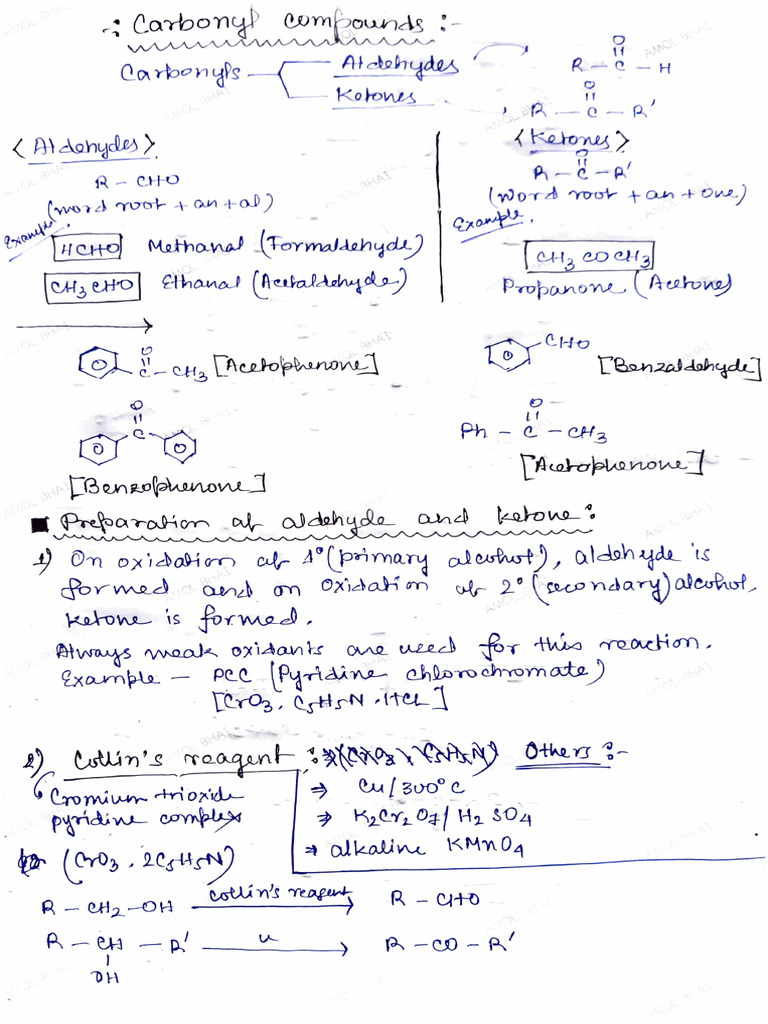 -: Carbonyl compounds :-
Carbonyls Aldehydes
Ketones
O
R - C - H
O
R - C - R'
<Aldehydes>
R - CHO
(word root + an + al)
Example
HCHO Methanal (Formaldehyde)
CH3 CHO Ethanal (Acetaldehyde)
<Ketones>
O
R - C - R'
(word root + an + one)
Example
CH3 CO CH3
Propanone (Acetone)
O
C - CH3 [Acetophenone]
CHO
[Benzaldehyde]
O
C
[Benzophenone]
O
Ph - C - CH3
[Acetophenone]
Preparation of aldehyde and ketone :
1) On oxidation of 1° (primary alcohol), aldehyde is
formed and on oxidation of 2° (secondary) alcohol,
ketone is formed.
Always weak oxidants are used for this reaction.
Example - PCC (Pyridine chlorochromate)
[CrO3. C5H5N .HCL]
2) Collin's reagent :
Cromium trioxide
pyridine complex
(CrO3 . 2C5H5N)
Others :-
⇒ Cu/300°C
⇒ K2Cr2O7/H2SO4
⇒ alkaline KMnO4
R - CH2 - OH Collin's reagent R - CHO
R - CH - R' u R - CO - R'
OH
AMOL BHAI